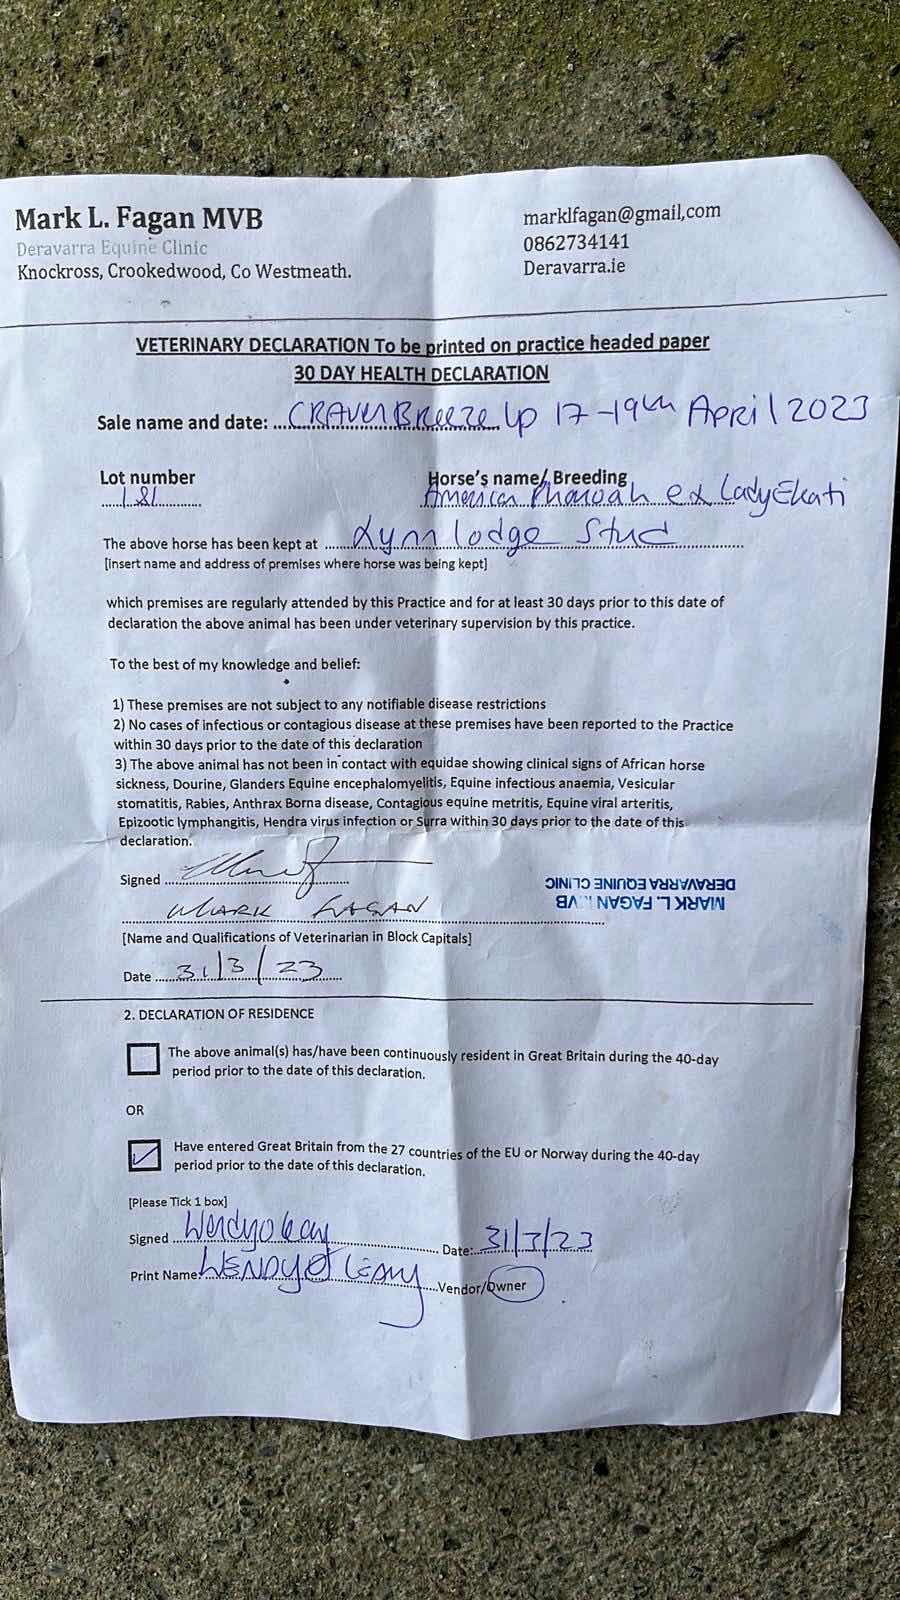 Mark L. Fagan MVB
Deravarra Equine Clinic
Knockross, Crookedwood, Co Westmeath.
marklfagan@gmail,com
0862734141
Deravarra.ie
VETERINARY DECLARATION To be printed on practice headed paper
30 DAY HEALTH DECLARATION
Sale name and date: ...CRAVEN Breeze Up 17-19th April 2023
Lot number
181
Horse's name/ Breeding
American Pharoah ex Lady Ekati
The above horse has been kept at ....Lynn lodge Stud
[insert name and address of premises where horse was being kept]
which premises are regularly attended by this Practice and for at least 30 days prior to this date of
declaration the above animal has been under veterinary supervision by this practice.
To the best of my knowledge and belief:
1) These premises are not subject to any notifiable disease restrictions
2) No cases of infectious or contagious disease at these premises have been reported to the Practice
within 30 days prior to the date of this declaration
3) The above animal has not been in contact with equidae showing clinical signs of African horse
sickness, Dourine, Glanders Equine encephalomyelitis, Equine infectious anaemia, Vesicular
stomatitis, Rabies, Anthrax Borna disease, Contagious equine metritis, Equine viral arteritis,
Epizootic lymphangitis, Hendra virus infection or Surra within 30 days prior to the date of this
declaration.
Signed
MARK L. FAGAN MVB
DERAVARRA EQUINE CLINIC
MARK FAGAN
[Name and Qualifications of Veterinarian in Block Capitals]
Date ....31/3/23
2. DECLARATION OF RESIDENCE
The above animal(s) has/have been continuously resident in Great Britain during the 40-day
period prior to the date of this declaration.
OR
Have entered Great Britain from the 27 countries of the EU or Norway during the 40-day
period prior to the date of this declaration.
[Please Tick 1 box]
Signed ..Wendy O Leary Date:..31/3/23
Print Name WENDY O LEARY Vendor/Owner